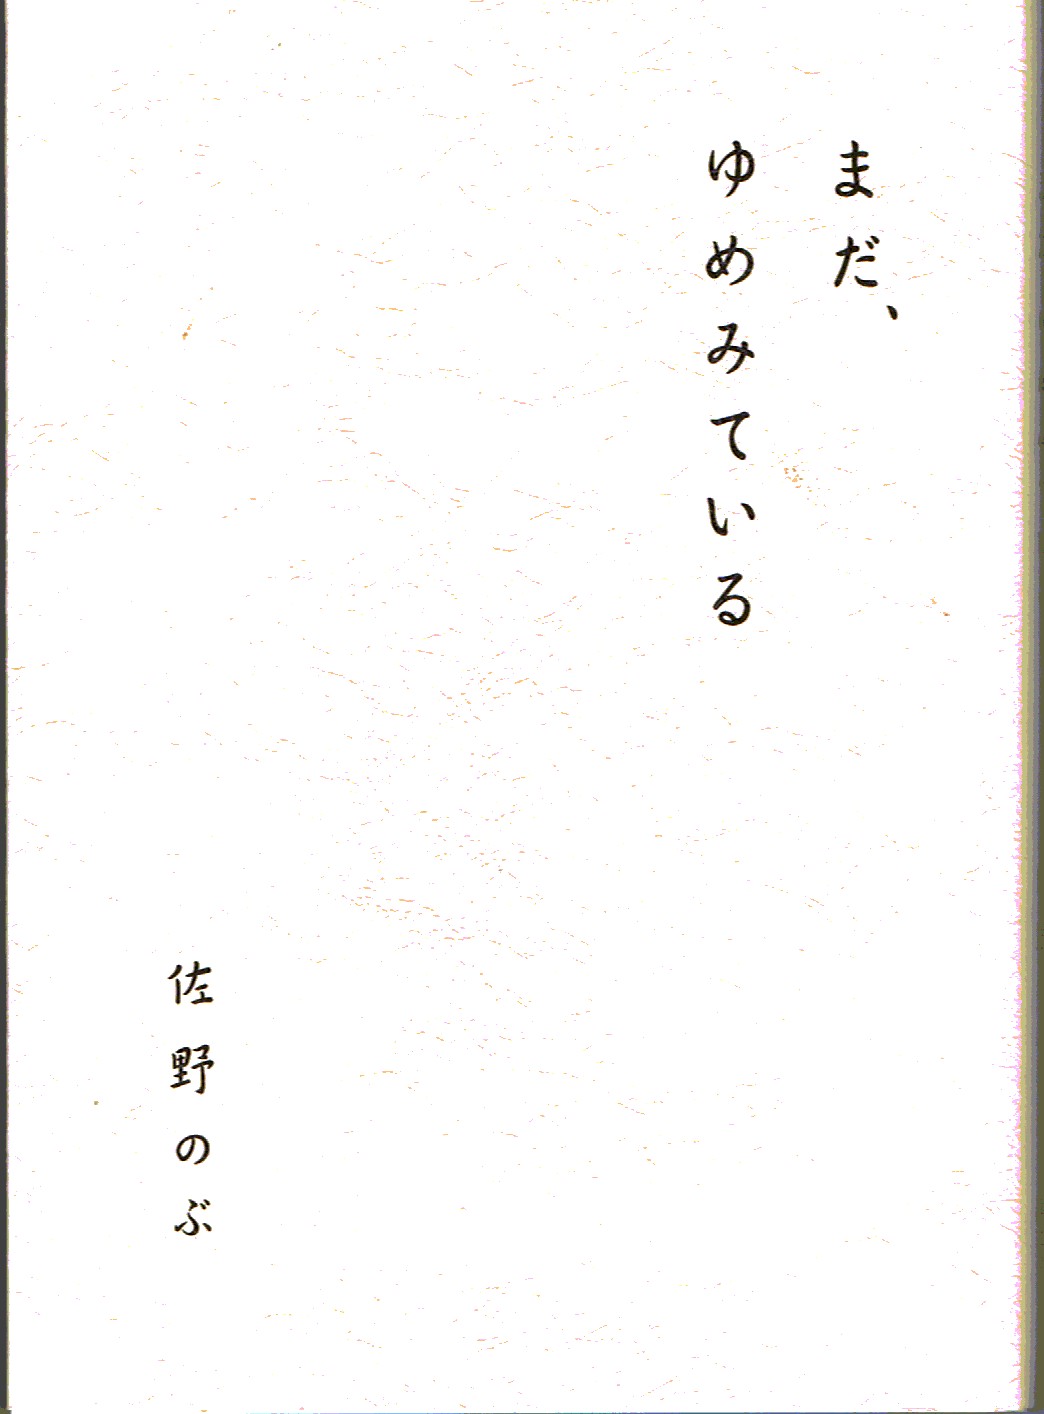 まだ、
ゆめみている
佐野のぶ